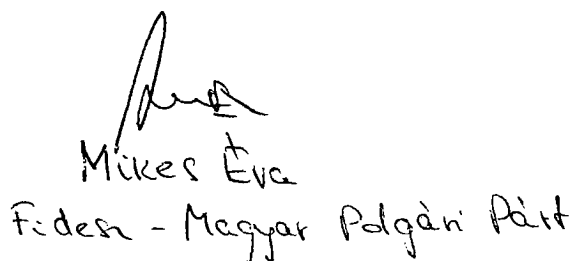 Mikes Éva
Fidesz - Magyar Polgári Párt